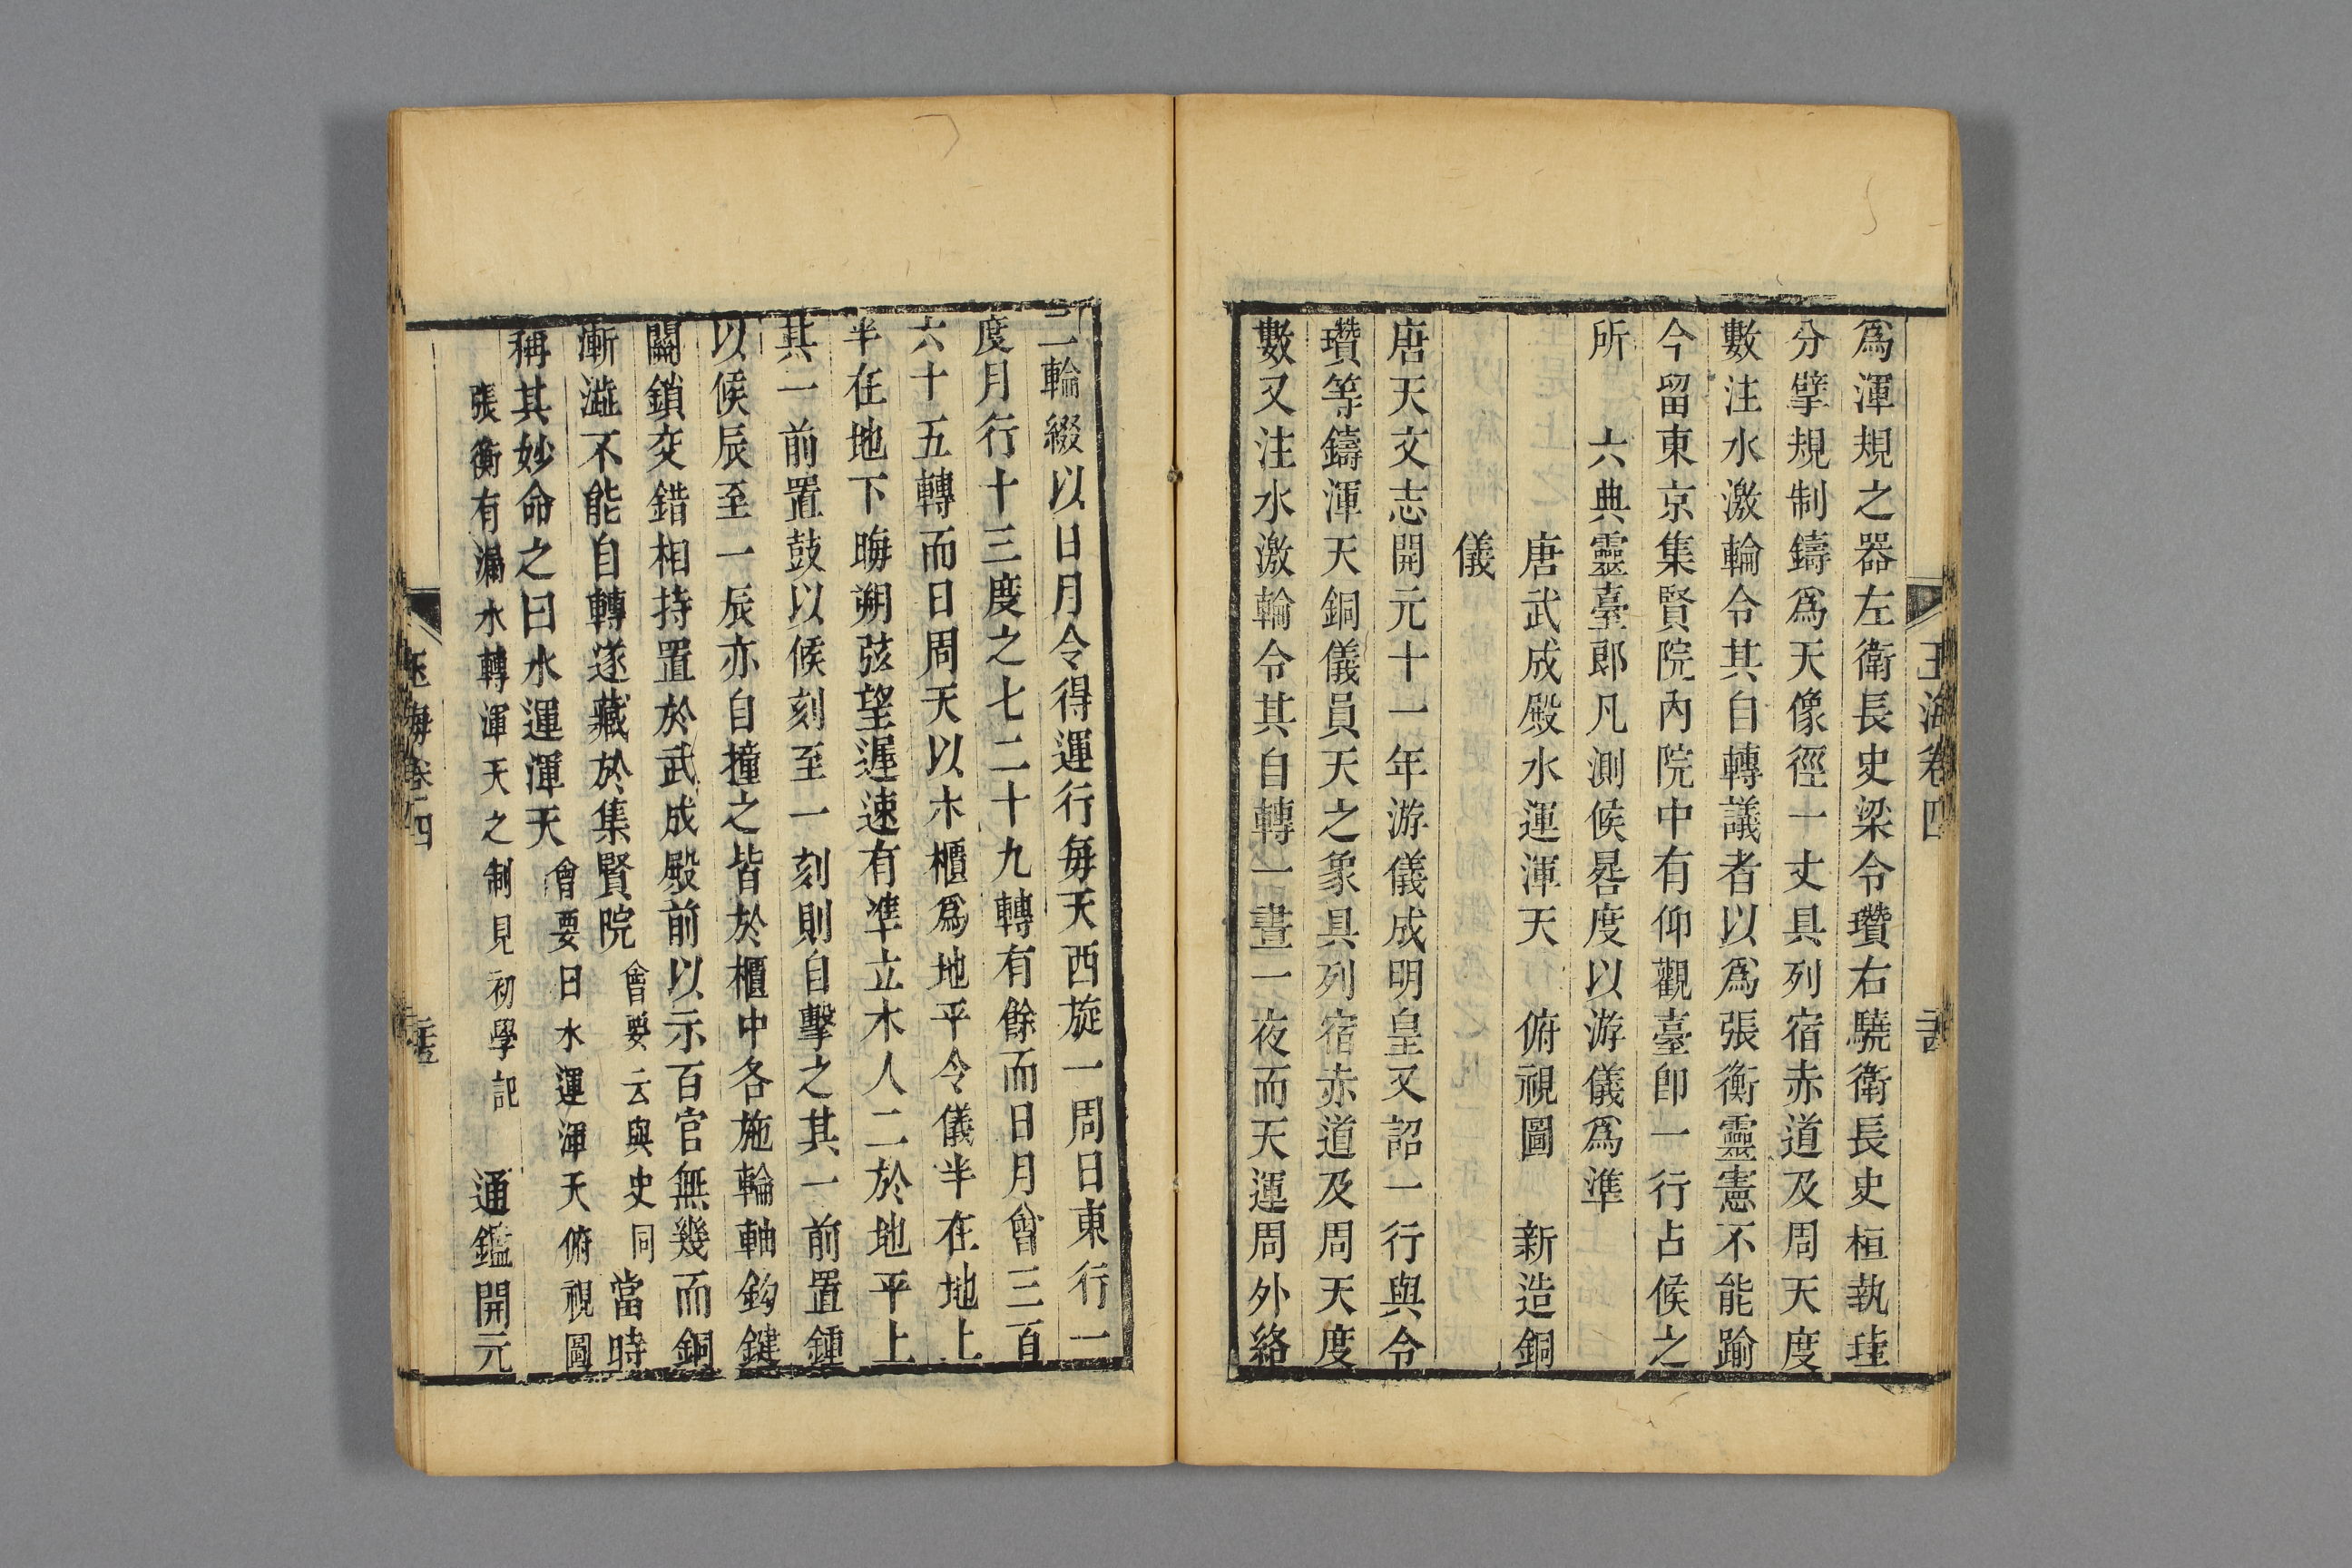 玉海卷四
為渾規之器左衛長史梁令瓚右驍衛長史桓執珪
分擘規制鑄為天像徑一丈具列宿赤道及周天度
數注水激輪令其自轉議者以為張衡靈憲不能踰
今留東京集賢院內院中有仰觀臺即一行占候之
所　六典靈臺郎凡測候晷度以游儀為準
唐武成殿水運渾天　俯視圖　新造銅
儀
唐天文志開元十一年游儀成明皇又詔一行與令
瓚等鑄渾天銅儀員天之象具列宿赤道及周天度
數又注水激輪令其自轉一晝一夜而天運周外絡
二輪綴以日月令得運行每天西旋一周日東行一
度月行十三度之七二十九轉有餘而日月會三百
六十五轉而日周天以木櫃為地平令儀半在地上
半在地下晦朔弦望遲速有準立木人二於地平上
其一前置鼓以候刻至一刻則自擊之其一前置鍾
以候辰至一辰亦自撞之皆於櫃中各施輪軸鈎鍵
關鎖交錯相持置於武成殿前以示百官無幾而銅
漸澁不能自轉遂藏於集賢院會要云與史同當時
稱其妙命之曰水運渾天會要曰水運渾天俯視圖
張衡有漏水轉渾天之制見初學記　通鑑開元
玉海卷四